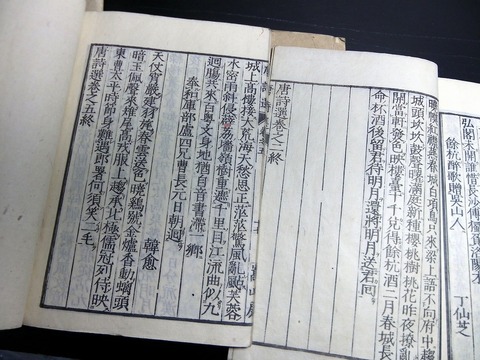 弘閣未開誰憎長沙傅
餘杭醉歌贈吳山人
丁仙芝
曉幕紅襟燕春城白項烏只來梁上語不向府中趨
城頭坎坎鼓聲曙滿庭新種櫻桃樹桃花昨夜撩亂
開當軒發色映樓臺十千兌得餘杭酒二月春城長
命杯酒後留君待明月還將明月送君回
唐詩選卷之二終
城上高樓接大荒海天愁思正茫茫驚風亂颭芙蓉
水密雨斜侵薜荔墻嶺樹重遮千里目江流曲似九
迴腸共來百粵文身地猶自音書滯一鄉
奉和庫部盧四兄曹長元日朝迴
韓愈
天仗宵嚴建羽旄春雲送色曉鷄號金爐香動螭頭
暗玉佩聲來雉尾高戎服上趨承北極儒冠列侍映
東曹太平時節身難遇郎署何須笑二毛
唐詩選卷之五終